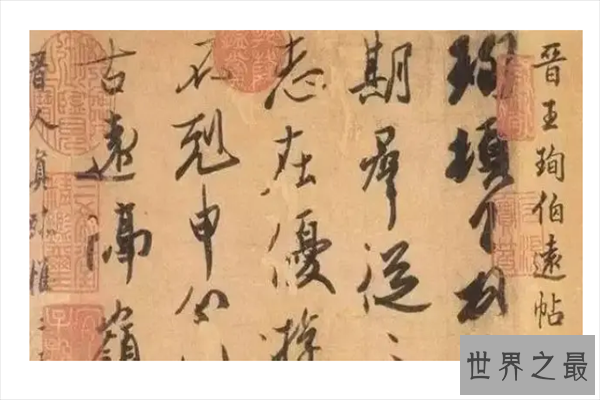 晉王珣伯遠帖
珣頓首
期群從
志在優遊
不剋申分別
古遠隔嶺
晉人真跡惟二
世界之最